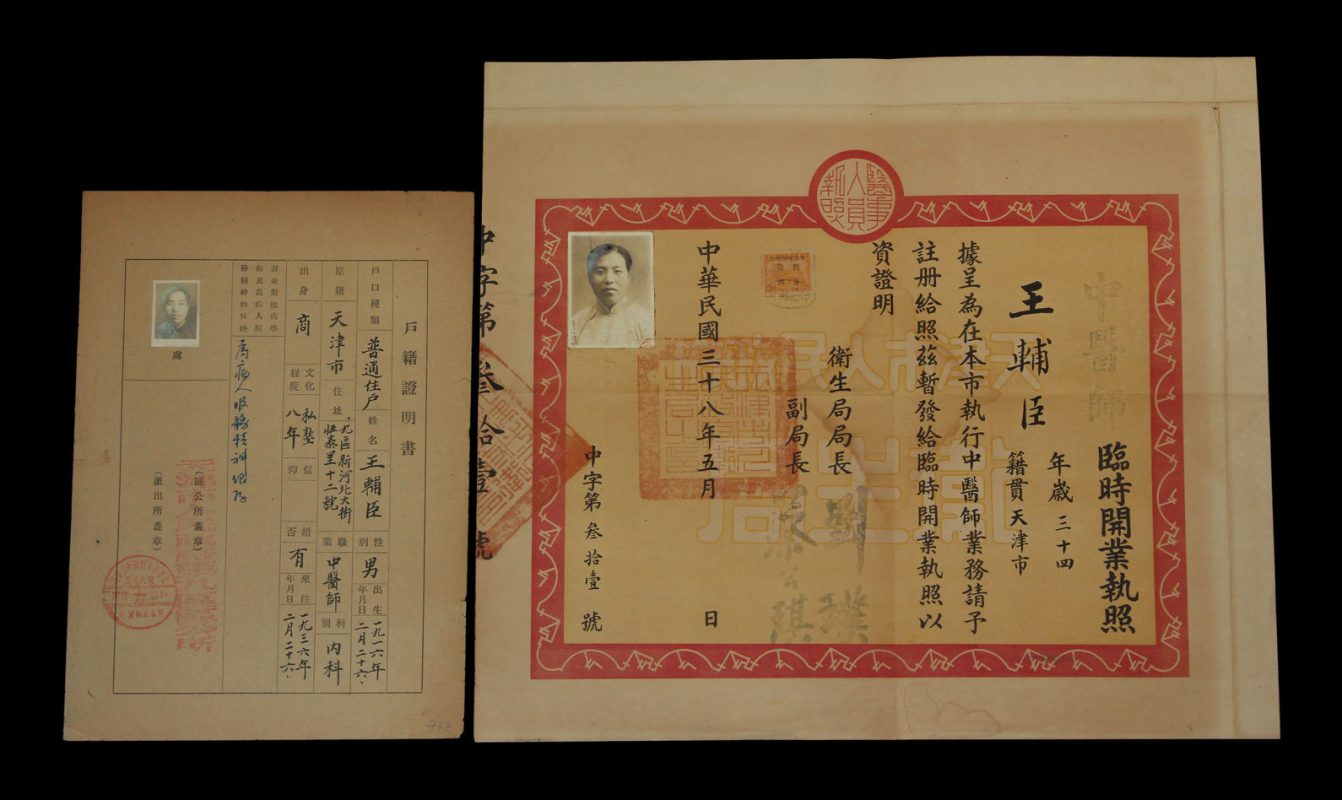 戶籍證明書
戶口種類 普通住戶 姓名 王輔臣 性別 男 出生年月日 一九一六年二月二十六
原籍 天津市 住址 九區新河北大街恆泰里十二號 職業 中醫師 科別 內科
出身 商 文化程度 私塾八年 信仰 婚否 有 來往年月日 一九三六年二月二十六
群衆對他治學
術及爲病人服
務精神的反映
爲病人服務精神很好
處
(區公所蓋章)
(派出所蓋章)
醫事人員執照
中醫師
臨時開業執照
王輔臣 年歲 三十四 籍貫 天津市
據呈為在本市執行中醫師業務請予
註册給照茲暫發給臨時開業執照以
資證明
衛生局局長
副局長
中華民國三十八年五月 日
中字第叁拾壹號
中字第叁拾壹號
天津市人民政府
衛生局